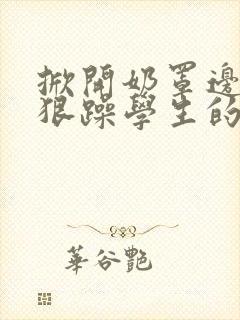 掀開奶罩邊
狠躁學生的
華谷艷